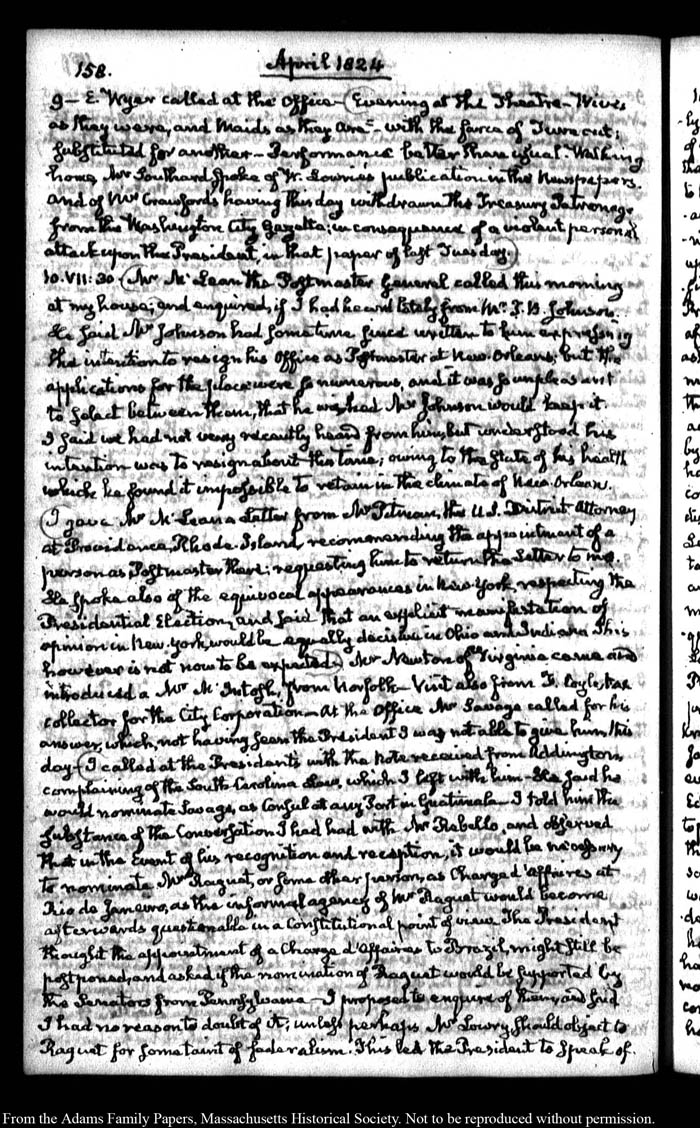 158. April 1824
9 — E. Wyer called at the Office — (Evening at the Theatre — Wives
as they were, and Maids as they are — with the farce of Turn out;
substituted for another — Performance better than usual. Walking
home, Mr Southard spoke of W. Lowrie's publication in the Newspapers.
and of Mr Crawford's having this day withdrawn the Treasury Patronage
from the Washington City Gazette; in consequence of a violent personal
attack upon the President, in that paper of last Tuesday.)
10. VII: 30. (Mr McLean the Postmaster General called this morning
at my house; and enquired, if I had heard lately from Mr T. B. Johnson.
He said Mr Johnson had some time since written to him expressing
the intention to resign his Office as Postmaster at New-Orleans; but the
applications for the place were so numerous, and it was so unpleasant
to select between them, that he wished Mr Johnson would keep it.
I said we had not very recently heard from him, but understood his
intention was to resign about this time; owing to the state of his health
which he found it impossible to retain in the climate of New-Orleans.
(I gave Mr McLean a Letter from Mr Pitman, the U.S. District Attorney
at Providence, Rhode-Island, recommending the appointment of a
person as Postmaster there; requesting him to return the Letter to me.
He spoke also of the equivocal appearances in New-York, respecting the
Presidential Election, and said that an explicit manifestation of
opinion in New-York, would be equally decisive in Ohio and Indiana. This
however is not now to be expected.) Mr Newton of Virginia came and
introduced a Mr McIntosh, from Norfolk — Visit also from F. Coyle, tax
collector for the City Corporation — At the Office Mr Savage called for his
answer, which, not having seen the President I was not able to give him this
day — (I called at the President's with the Note received from Addington,
complaining of the South Carolina Law, which I left with him — He said he
would nominate Savage, as Consul at any Port in Guatimala — I told him the
substance of the Conversation I had had with Mr Rebello, and observed
that in the Event of his recognition and reception, it would be necessary
to nominate Mr Raguet, or some other person, as Chargé d'Affaires at
Rio de Janeiro, as the informal agency of Mr Raguet would become
afterwards questionable in a Constitutional point of view. The President
thought the appointment of a Chargé d'Affaires to Brazil, might still be
postponed; and asked if the nomination of Raguet would be supported by
the Senators from Pennsylvania — I proposed to enquire of them, and said
I had no reason to doubt of it; unless perhaps Mr Lowry, should object to
Raguet for some taint of federalism. This led the President to speak of
From the Adams Family Papers, Massachusetts Historical Society. Not to be reproduced without permission.